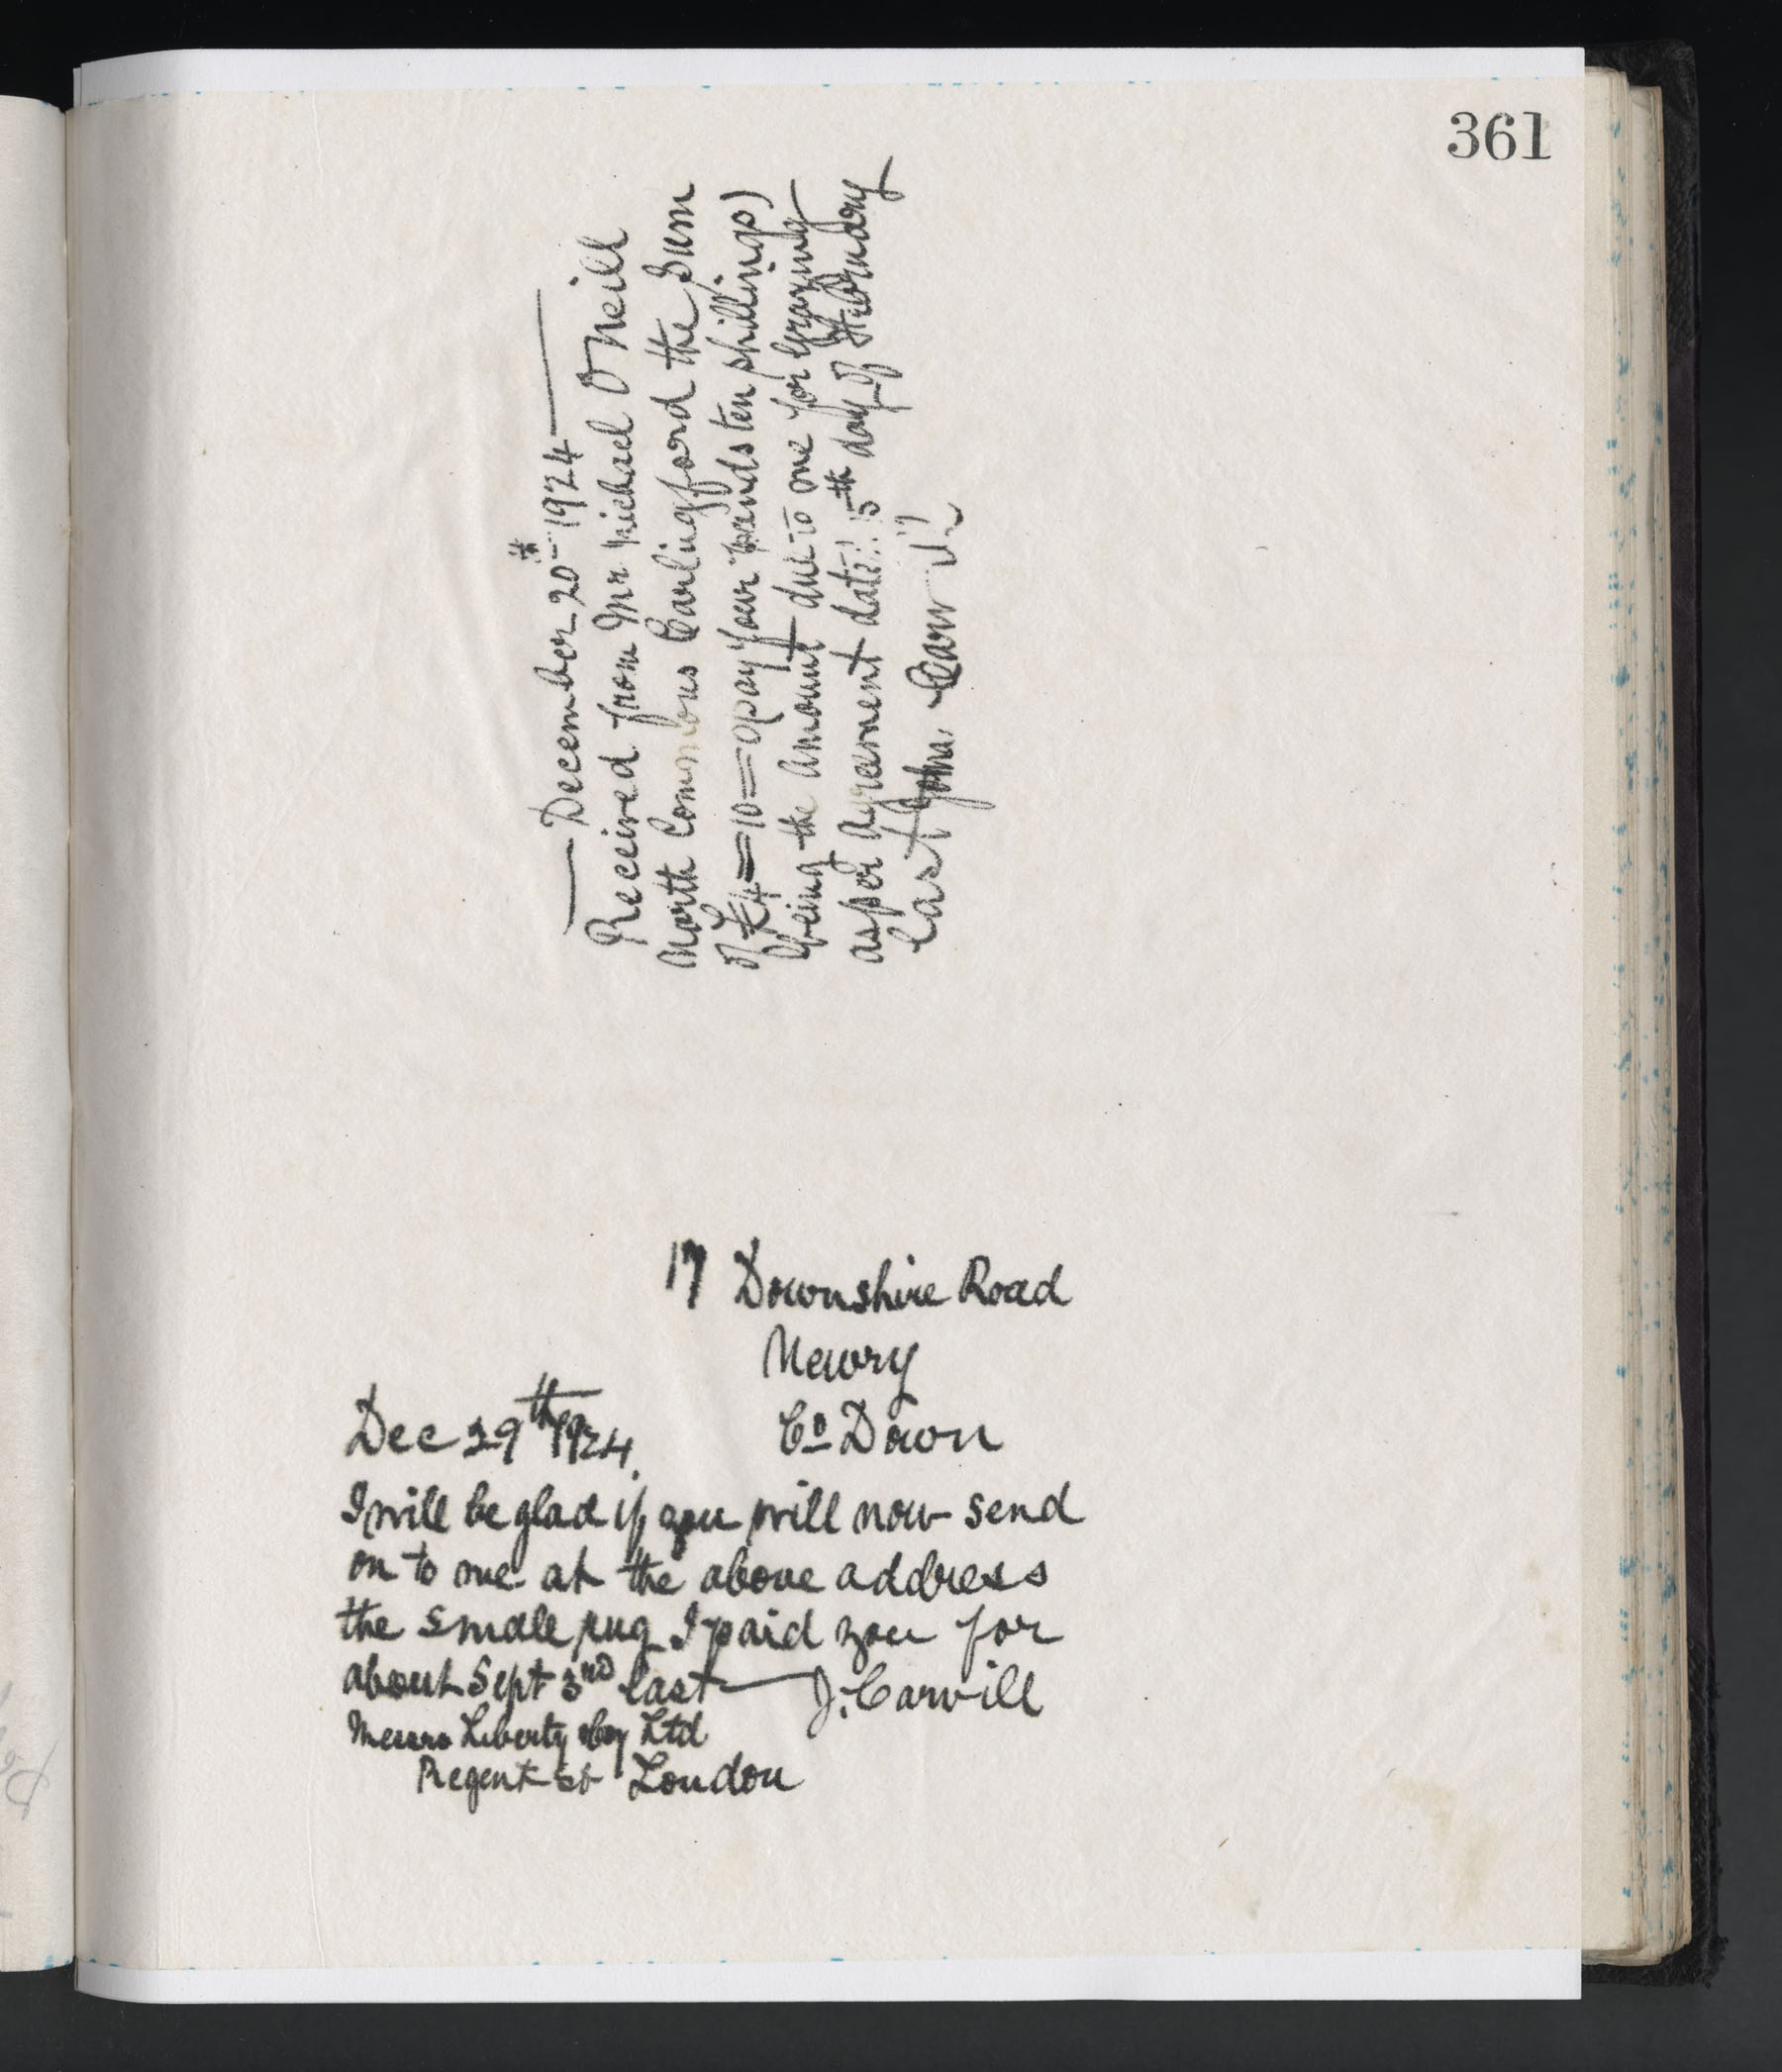 361
December 20th 1924
Received from Mr Michael O Neill
North Commons Carlingford the Sum
of £4=10=0 pay four pounds ten shillings)
being the amount due to me for Grazing
as per agreement date! 15th day of February
last John
17 Downshire Road
Newry
Co Down
Dec 29th 1924.
I will be glad if you will now send
on to me at the above address
the small rug I paid you for
about Sept 3rd last — J. Carvill
Messrs Liberty & Coy Ltd
Regent St London